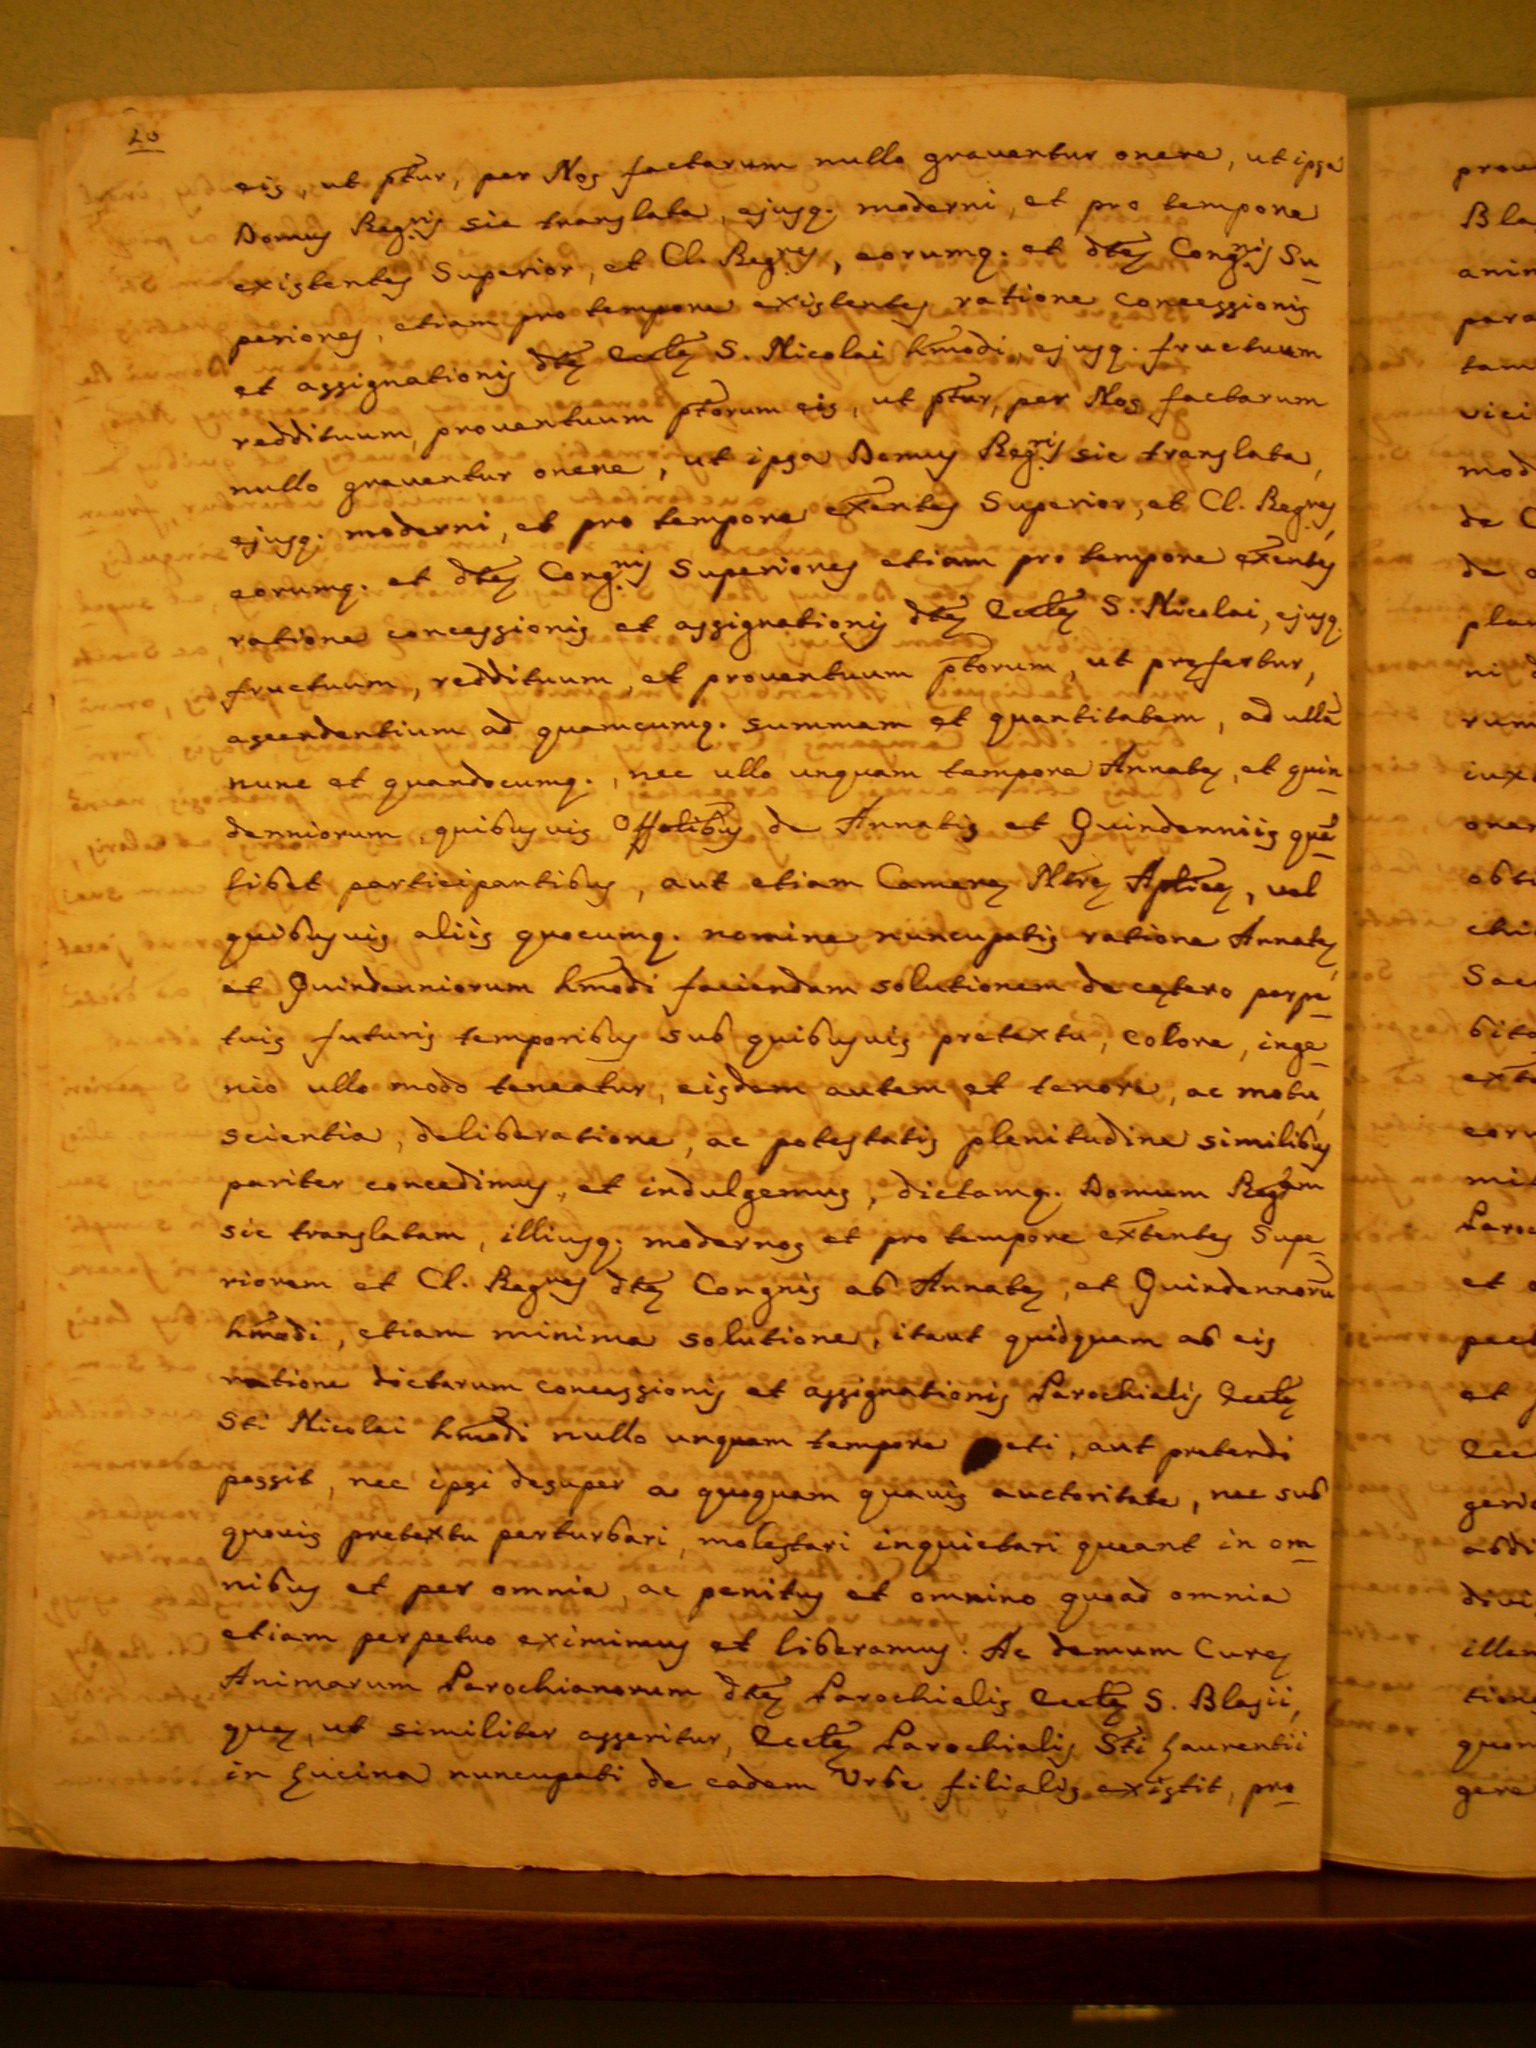 20
eis, ut ptur, per Nos factarum nullo graventur onere, ut ipsa
Domus Regris sic translata, ejusq. moderni, et pro tempore
existentes Superior, et Cl. Regres, eorumq. et dtæ Congnis Su-
periores, etiam pro tempore existentes ratione concessionis
et assignationis dtæ Ecclæ S. Nicolai hmodi, ejusq. fructuum
reddituum, proventuum ptorum eis, ut ptur, per Nos factarum
nullo graventur onere, ut ipsa Domus Regris sic translata,
ejusq. moderni, et pro tempore exentes Superior, et Cl. Regres,
eorumq. et dtæ Congnis Superiores etiam pro tempore exentes
ratione concessionis et assignationis dtæ Ecclæ S. Nicolai, ejusq.
fructuum, reddituum, et proventuum ptorum, ut præfertur,
ascendentium ad quamcumq. summam et quantitatem, ad ullã
nunc et quandocumq., nec ullo unquam tempore Annatæ, et quin-
denniorum, quibusvis Offalibus de Annatis et Quindenniis quõ-
libet participantibus, aut etiam Cameræ Nræ Aplicæ, vel
quibusvis aliis quocumq. nomine nuncupatis ratione Annatæ,
et Quindenniorum hmodi faciendam solutionem de cætero perpe-
tuis futuris temporibus sub quibusvis pretextu, colore, inge-
nio ullo modo teneatur, eisdem autem et tenore, ac motu,
scientia, deliberatione, ac potestatis plenitudine similibus
pariter concedimus, et indulgemus, dictamq. Domum Regrem
sic translatam, illiusq. modernos et pro tempore extentes Supe-
riorem et Cl. Regres dtæ Congnis ab Annatæ, et Quindennorũ
hmodi, etiam minima solutione, itaut quidquam ab eis
ratione dictarum concessionis et assignationis Parochialis Ecclæ
Sti Nicolai hmodi nullo unquam tempore peti, aut pretendi
possit, nec ipsi desuper a quoquam quavis auctoritate, nec sub
quovis pretextu perturbari, molestari inquietari queant in om-
nibus et per omnia, ac penitus et omnino quoad omnia
etiam perpetuo eximimus et liberamus. Ac demum Curæ
Animarum Parochianorum dtæ Parochialis Ecclæ S. Blasii,
quæ, ut similiter asseritur, Ecclæ Parochialis Sti Laurentii
in Lucina nuncupati de eadem Urbe filialis existit, pro-